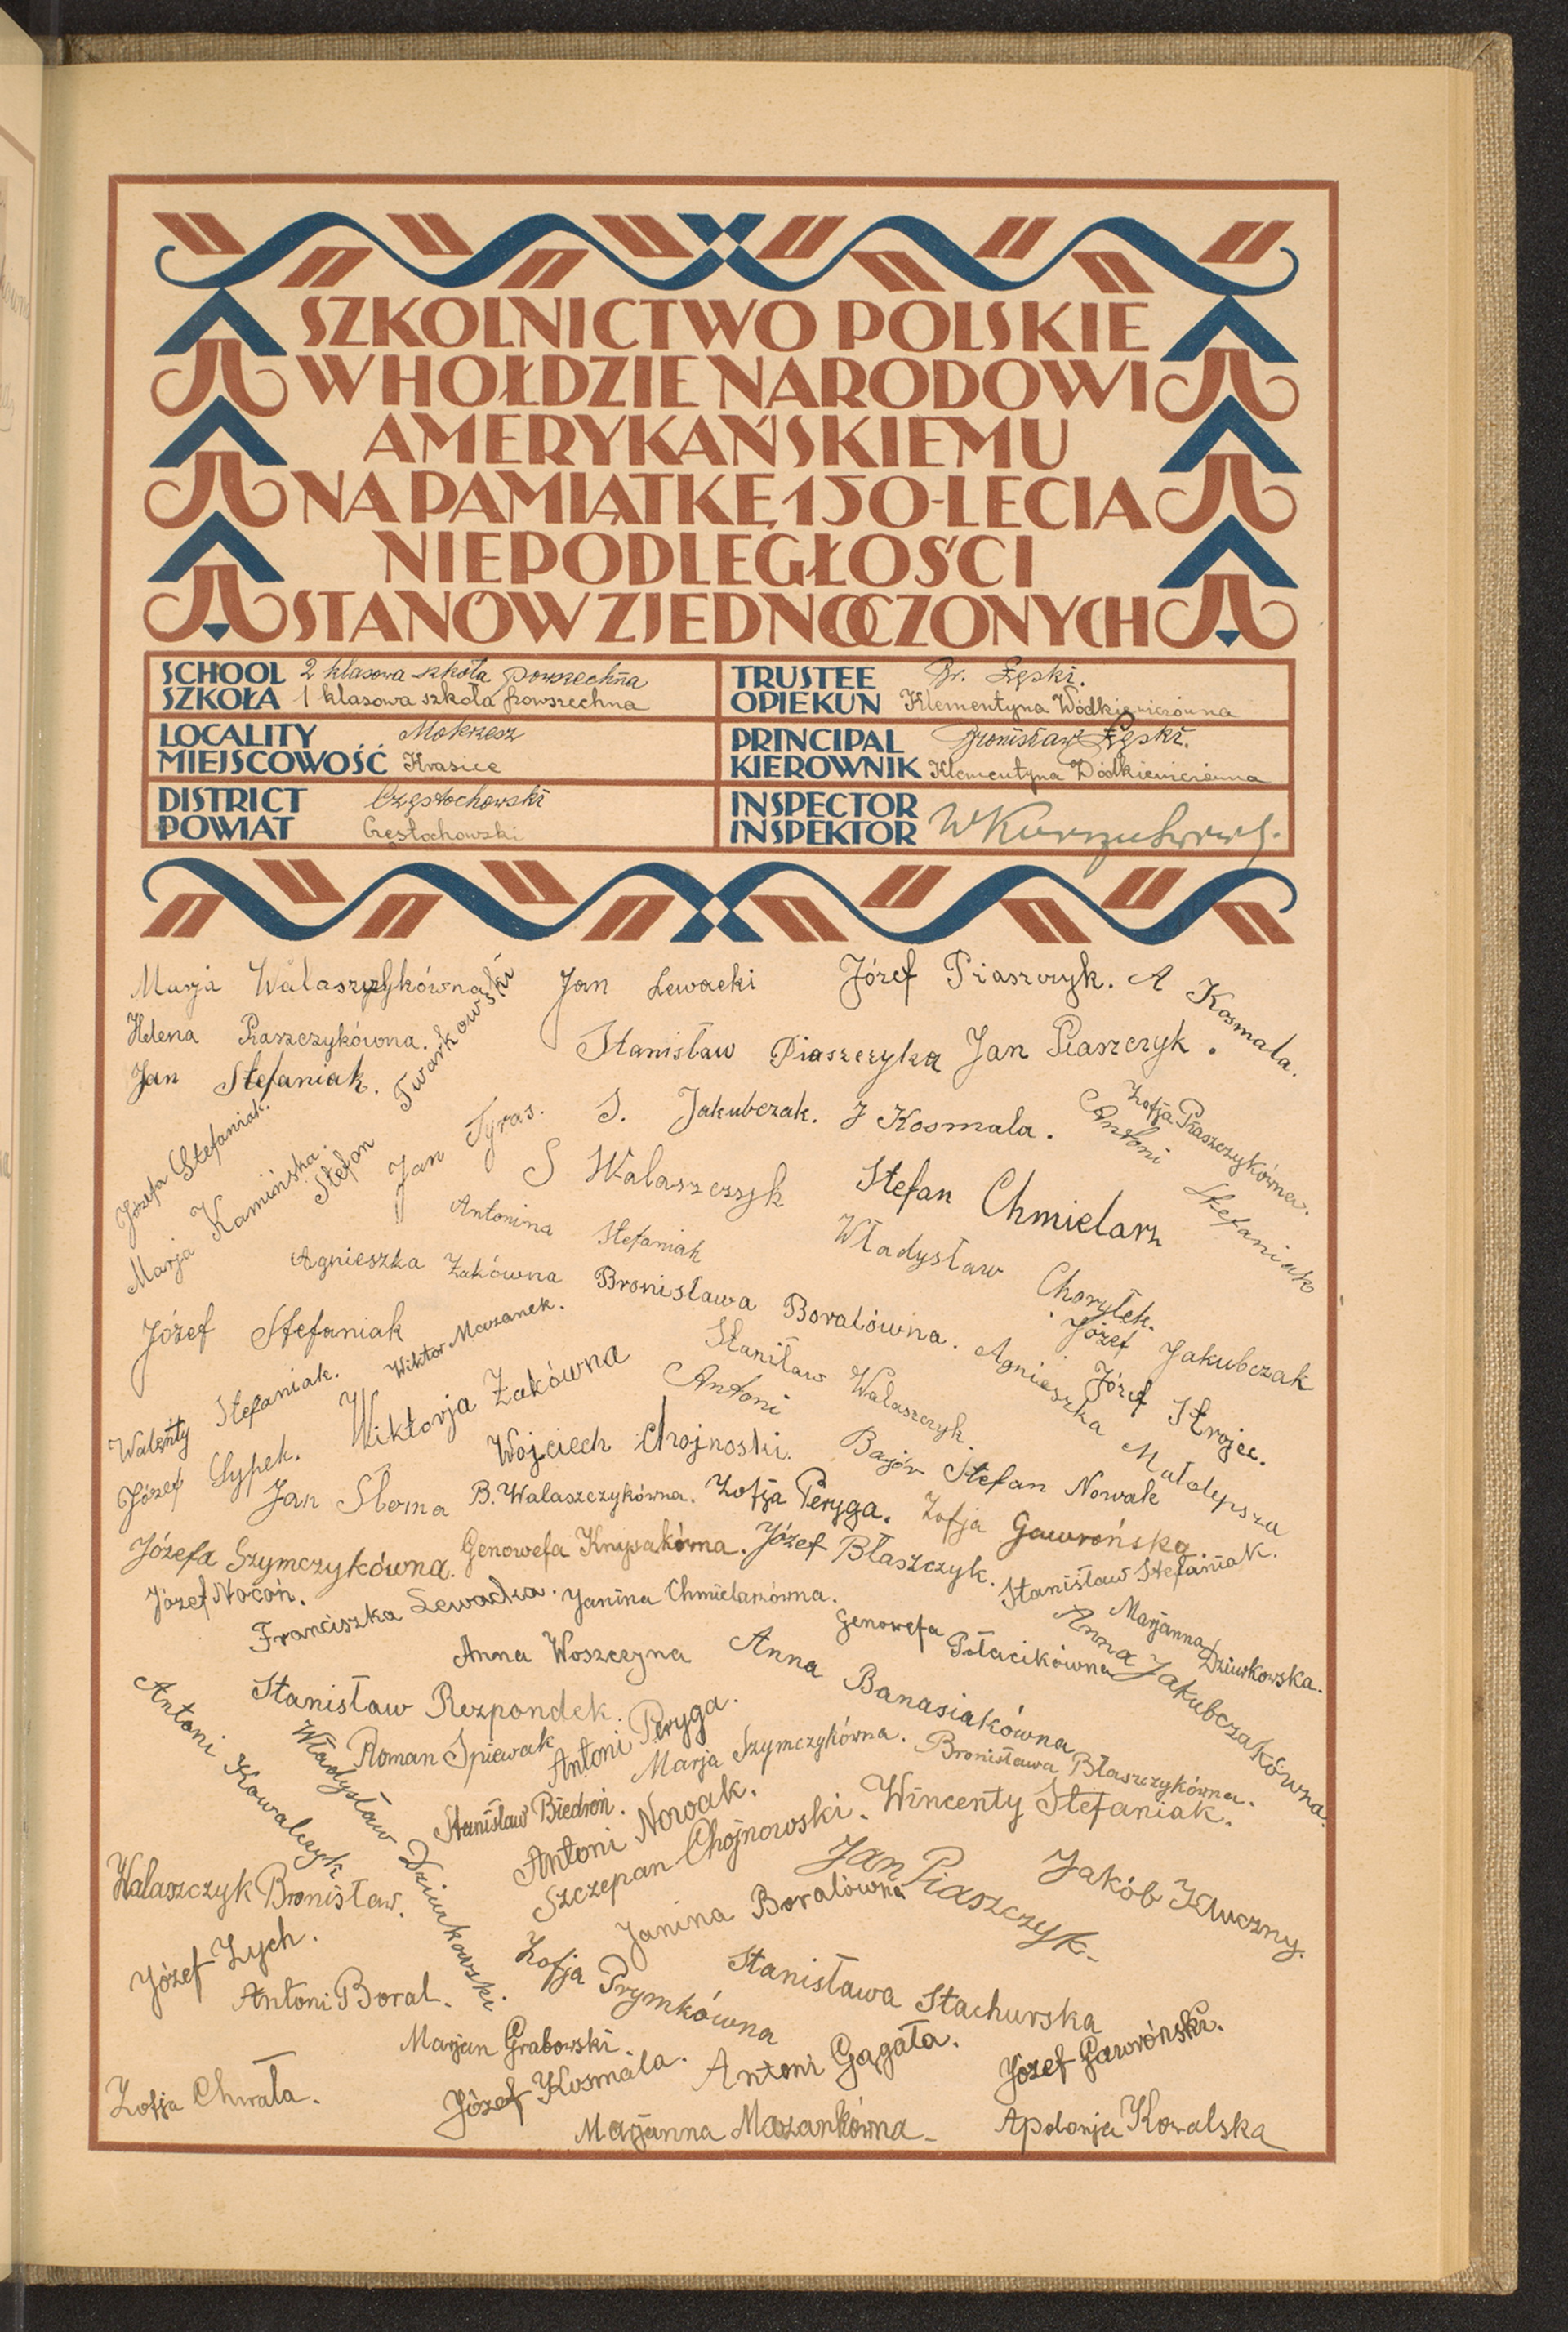 SZKOLNICTWO POLSKIE
W HOŁDZIE NARODOWI
AMERYKAŃSKIEMU
NA PAMIĄTKĘ 150-LECIA
NIEPODLEGŁOŚCI
STANÓW ZJEDNOCZONYCH
SCHOOL 2 klasowa szkoła powszechna
SZKOŁA 1 klasowa szkoła powszechna
TRUSTEE Br. Łęski.
OPIEKUN Klementyna Wódkiewiczówna
LOCALITY Mokrzesz
MIEJSCOWOŚĆ Krasice
PRINCIPAL Bronisław Łęski.
KIEROWNIK Klementyna Wódkiewiczówna
DISTRICT Częstochowski
POWIAT Częstochowski
INSPECTOR
INSPEKTOR
Marja Walaszczykówna
Jan Lewacki
Józef Piaszczyk.
A Kosmala.
Helena Piaszczykówna.
Stefan Twarkowski
Stanisław Piaszczyka
Jan Piaszczyk.
Jan Stefaniak.
Józefa Stefaniak.
Marja Kamińska.
Jan Tyras.
S. Jakubczak.
J Kosmala.
Zofja Piaszczykówna.
Antoni Stefaniak
S Walaszczyk
Stefan Chmielarz
Antonina Stefaniak
Władysław Chorylek.
Agnieszka Żakówna
Bronisława Boralówna.
Józef Jakubczak
Józef Stefaniak
Wiktor Mazanek.
Stanisław Walaszczyk.
Agnieszka Małolepsza
Józef Strojec.
Walenty Stefaniak.
Wiktorja Żakówna
Antoni Bajór
Józef Cypek.
Wojciech Chojnoski.
Stefan Nowak
Jan Słoma
B. Walaszczykówna.
Zofja Peryga.
Zofja Gawrońska.
Józefa Szymczykówna.
Genowefa Knysakówna.
Józef Błaszczyk.
Stanisław Stefaniak.
Józef Nocoń.
Franciszka Lewacka.
Janina Chmielarzówna.
Genowefa Połacikówna
Marjanna Dziurkowska.
Anna Jakubczakówna.
Anna Woszczyna
Anna Banasiakówna
Antoni Kowalczyk
Stanisław Rezpondek.
Władysław Dziurkowski
Roman Śpiewak
Antoni Peryga.
Marja Szymczykówna.
Bronisława Błaszczykówna.
Stanisław Biedroń.
Antoni Nowak.
Szczepan Chojnowski.
Wincenty Stefaniak.
Walaszczyk Bronisław.
Jan Piaszczyk
Jakób Kluczny.
Janina Boralówna
Józef Zych.
Zofja Prymkówna
Stanisława Stachurska
Antoni Boral.
Marjan Grabowski.
Józef Kosmala.
Antoni Gągała.
Józef Gawroński.
Zofja Chwała.
Marjanna Mazankówna
Apolonja Kowalska